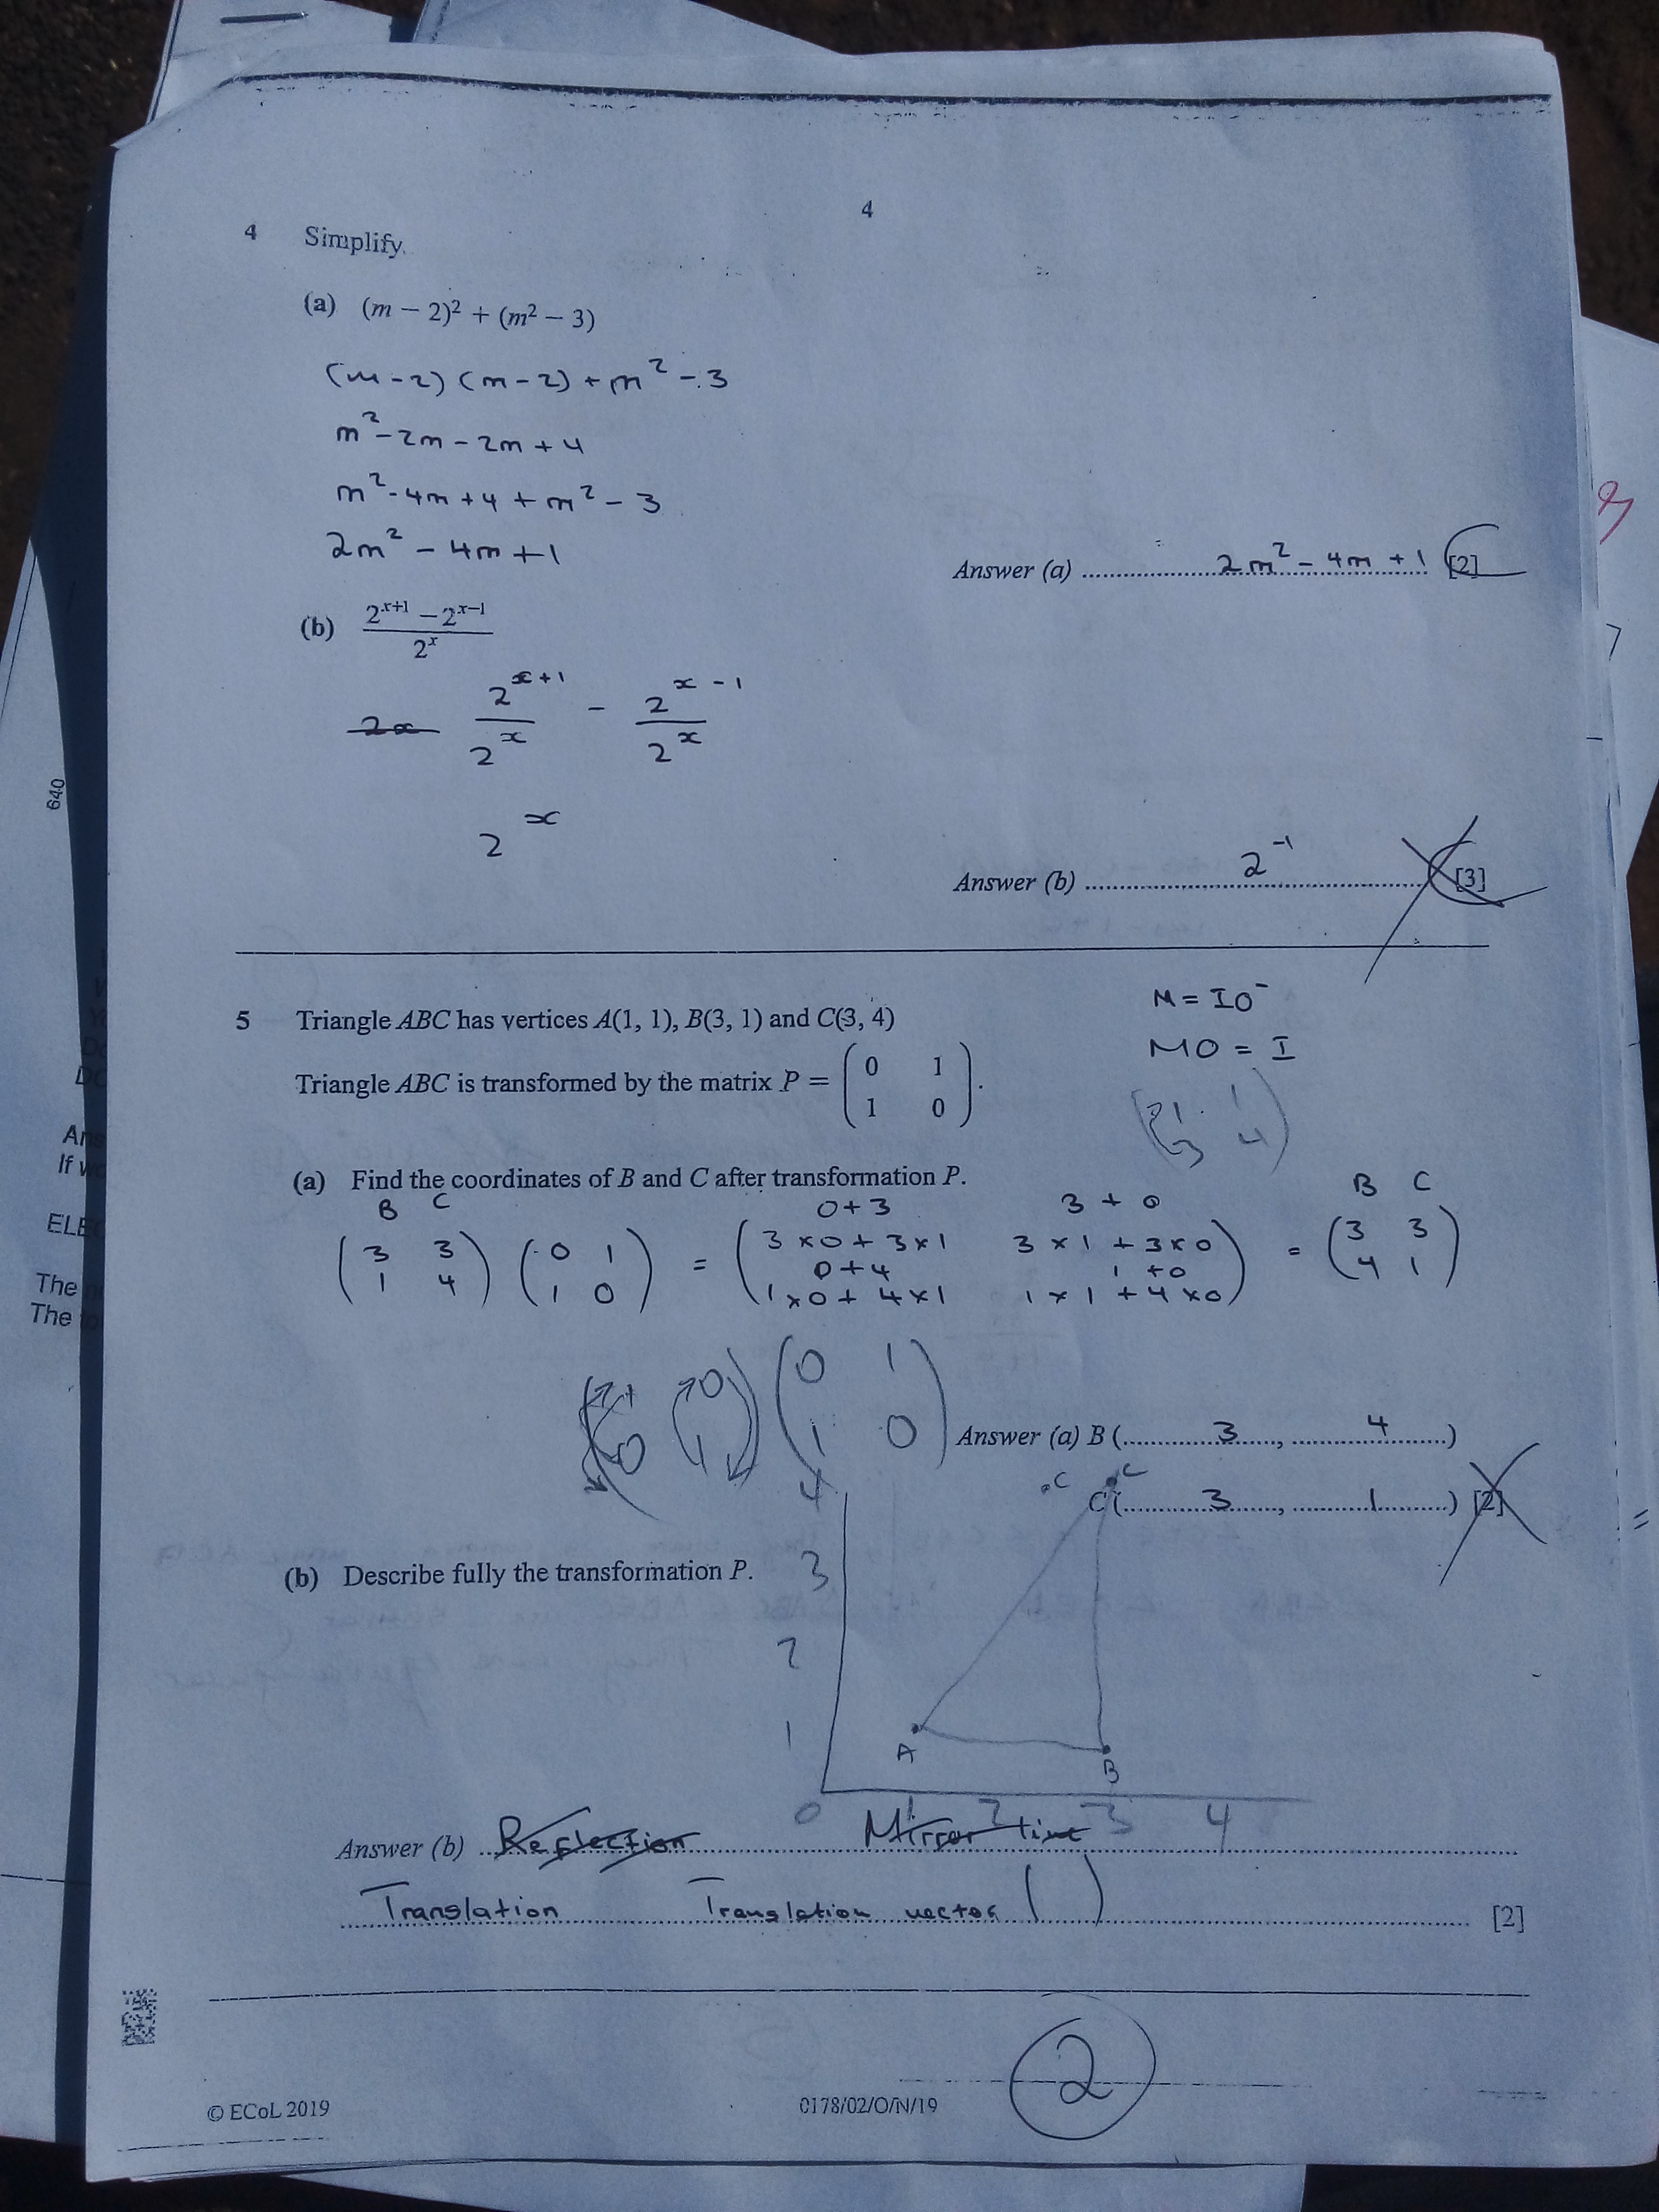 4
4 Simplify.
(a) (m – 2)² + (m² – 3)
(m-2)(m-2)+m²-3
m²-2m-2m+4
m²-4m+4+m²-3
2m²-4m+1
Answer (a) 2m²-4m+1 [2]
(b) (2^(x+1) – 2^(x–1)) / 2^x
2x 2^(x+1)/2^x - 2^(x-1)/2^x
2^x
Answer (b) 2^-1 [3]
M = IO⁻
MO = I
5 Triangle ABC has vertices A(1, 1), B(3, 1) and C(3, 4)
Triangle ABC is transformed by the matrix P = (0 1
1 0).
(a) Find the coordinates of B and C after transformation P.
B C 0+3 3+0 B C
(3 3 (0 1 = (3x0+3x1 3x1+3x0) = (3 3
0+4 1+0
1 4) 1 0) 1x0+4x1 1x1+4x0) 4 1)
(0 1
1 0)
Answer (a) B (3, 4)
C (3, 1) [2]
(b) Describe fully the transformation P.
4
3
2
1
0 1 2 3 4
A B C
C
Answer (b) Reflection Mirror line
Translation Translation vector ( ) [2]
2
© ECoL 2019 0178/02/O/N/19
640
An
If w
ELE
The
The